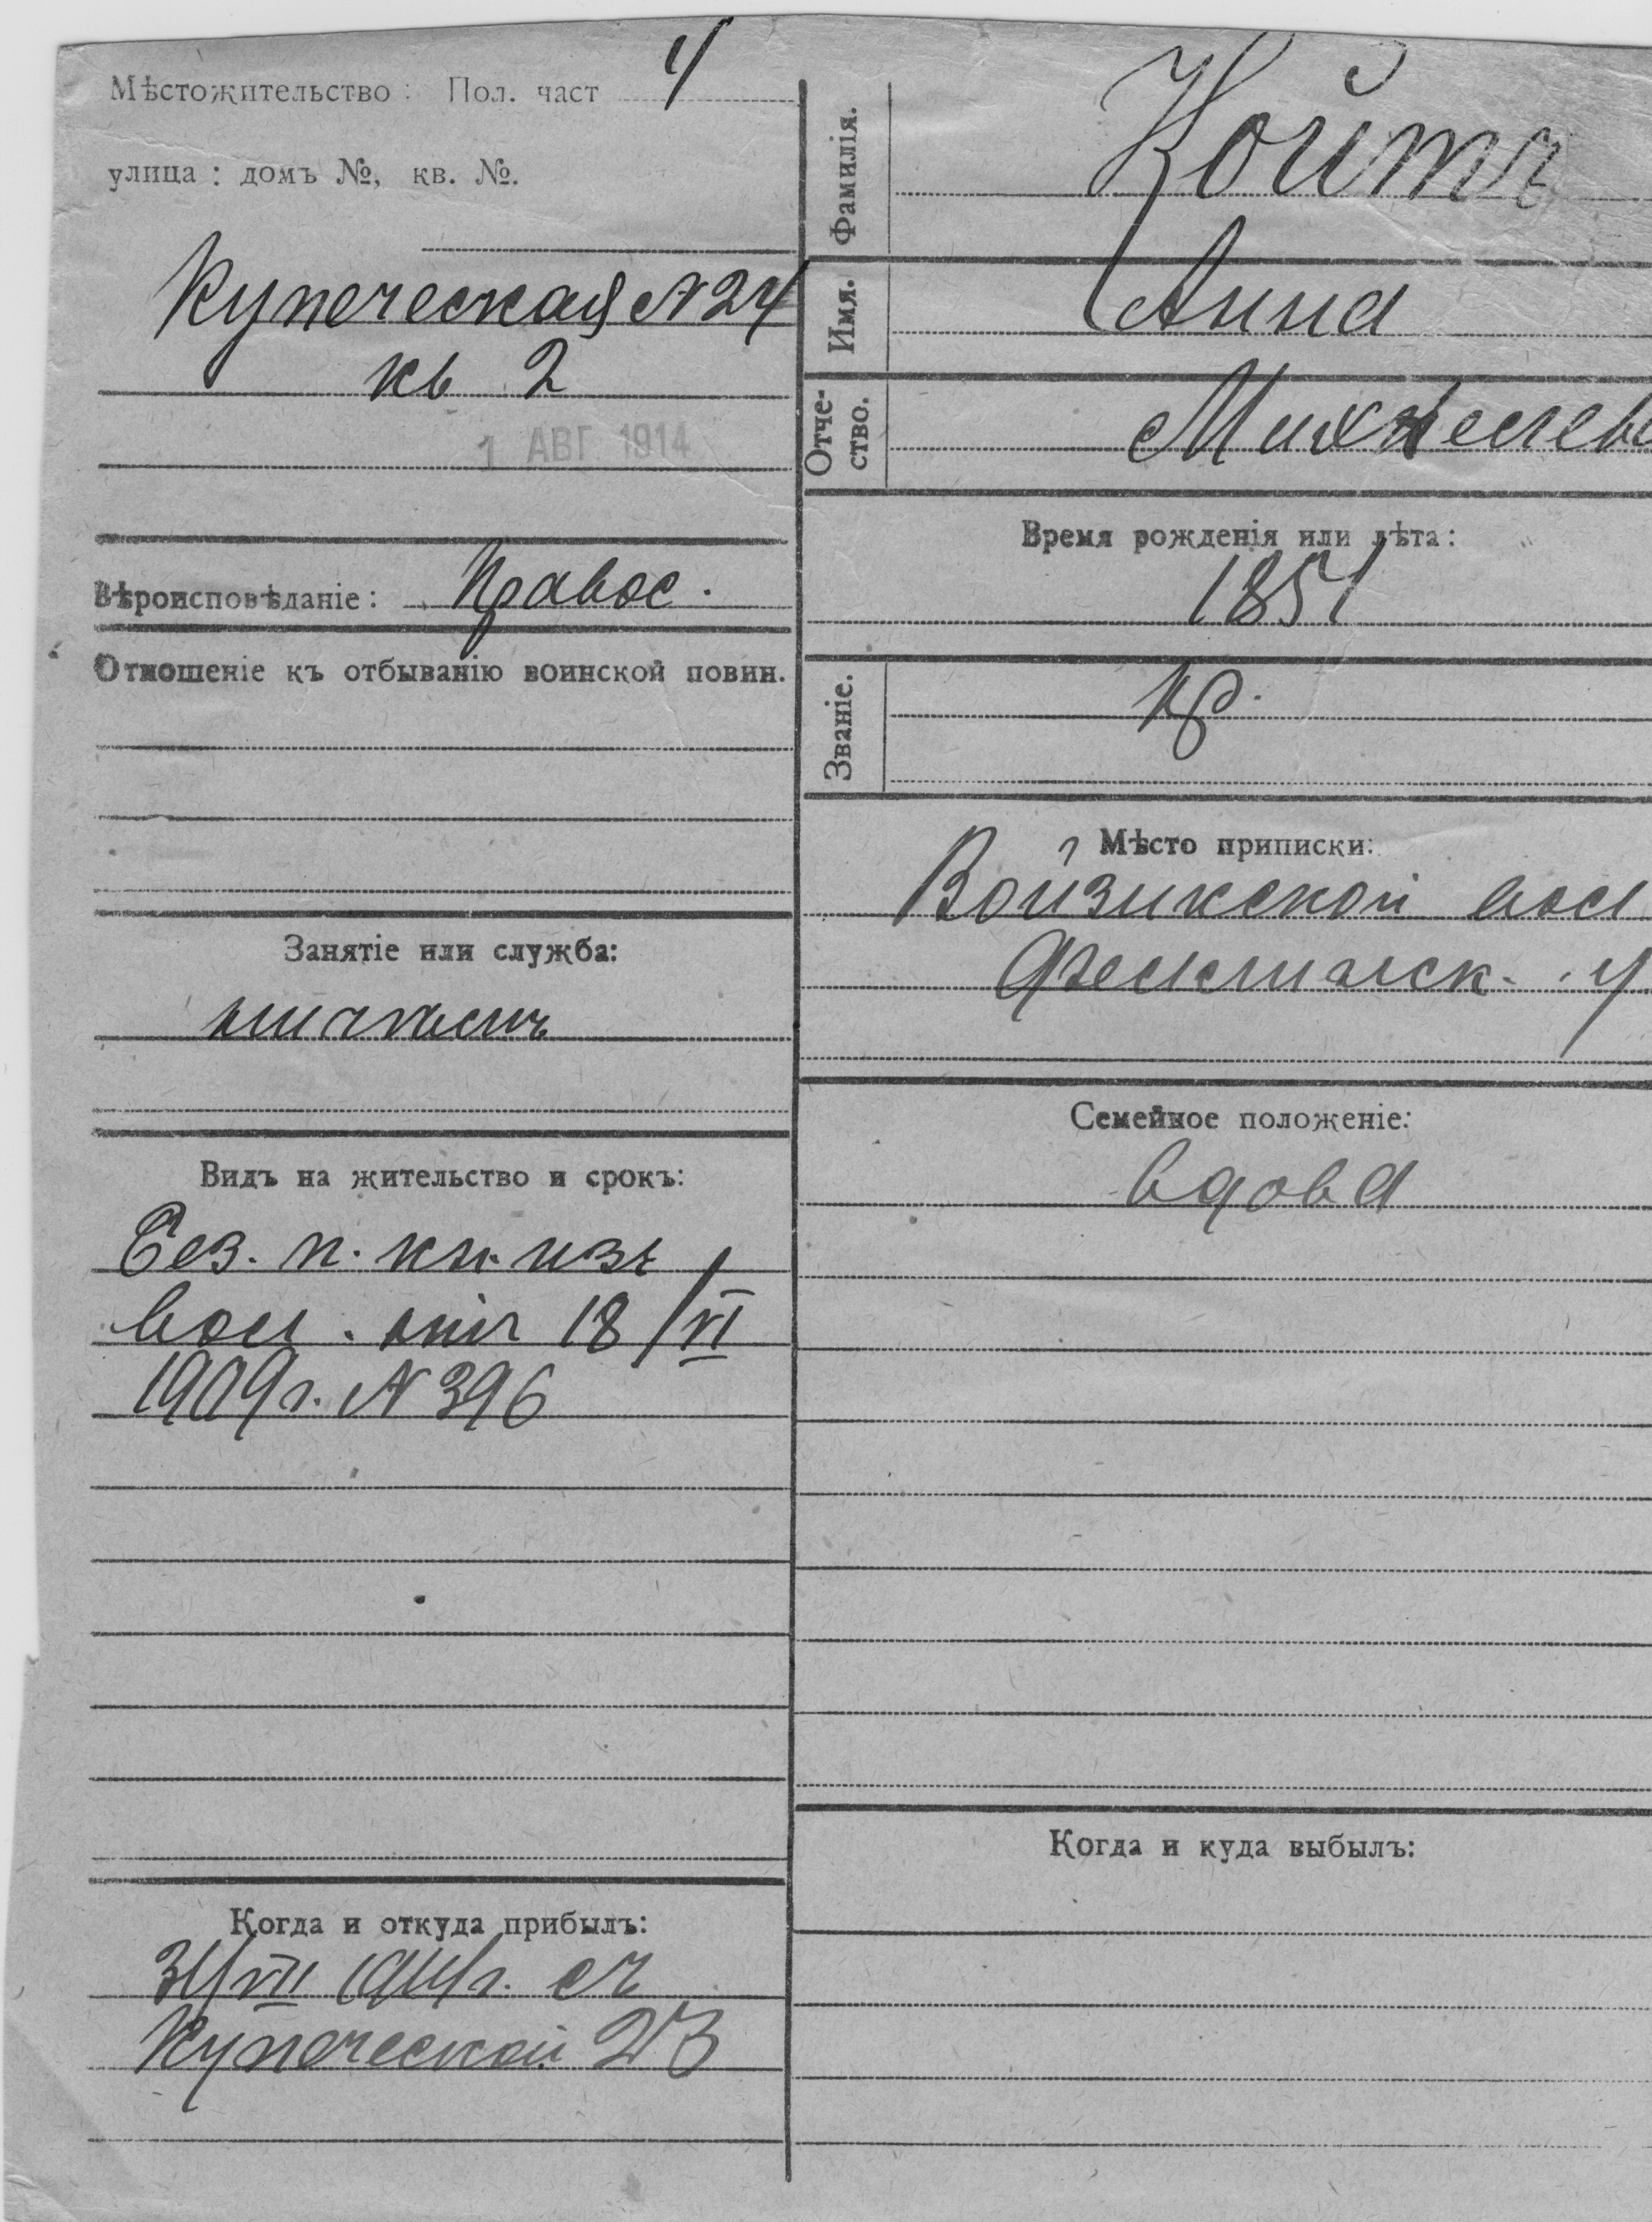 Мѣстожительство: Пол. част 4
улица: домъ №, кв. №.
Купеческая №24
кв 2
1 АВГ 1914
Вѣроисповѣданіе: Правос.
Отношеніе къ отбыванію воинской повин.
Занятіе или служба:
Видъ на жительство и срокъ:
Без. п. кн. изъ
вол. отъ 18/VI
1909г. №396
Когда и откуда прибылъ:
31/VII 1914г. съ
Купеческой 23
Фамилія. Койтъ
Имя. Анна
Отче-
ство.
Время рожденія или лѣта:
1851
Званіе. кр.
Мѣсто приписки:
Войзикской вол
Феллинск. у
Семейное положеніе:
вдова
Когда и куда выбылъ: